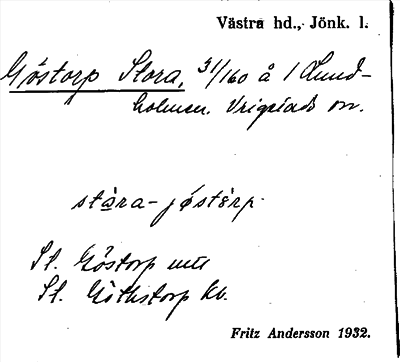 Västra hd., Jönk. l.
Göstorp Stora, 31/160 å 1 Lund-
holmen. Vrigstads sn.
stàra-jøstärp
St. Göstorp uttr
St. Göthstorp kb.
Fritz Andersson 1932.